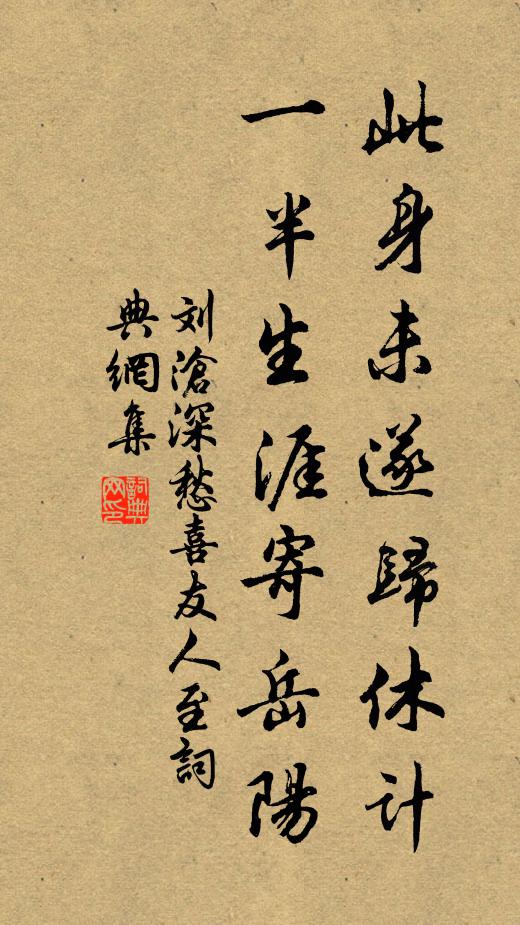 此身未遂歸休计
一半生涯寄岳陽
刘滄深愁喜友人至詞
典網集
詞典网印